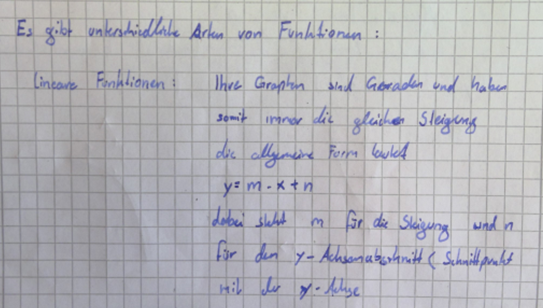 Es gibt unterschiedliche Arten von Funktionen :
lineare Funktionen : Ihre Graphen sind Geraden und haben
somit immer die gleichen Steigung
die allgemeine Form lautet
y = m · x + n
dabei steht m für die Steigung und n
für den y-Achsenabschnitt ( Schnittpunkt
mit der y-Achse